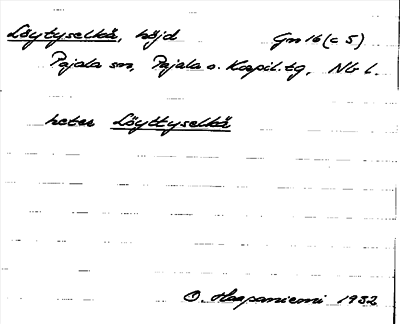 Löytyselkä, höjd Gm 16 (c 5)
Pajala sn, Pajala o. Korpil. tg, Nb l.
heter Löyttyselkä
O. Haapaniemi 1932